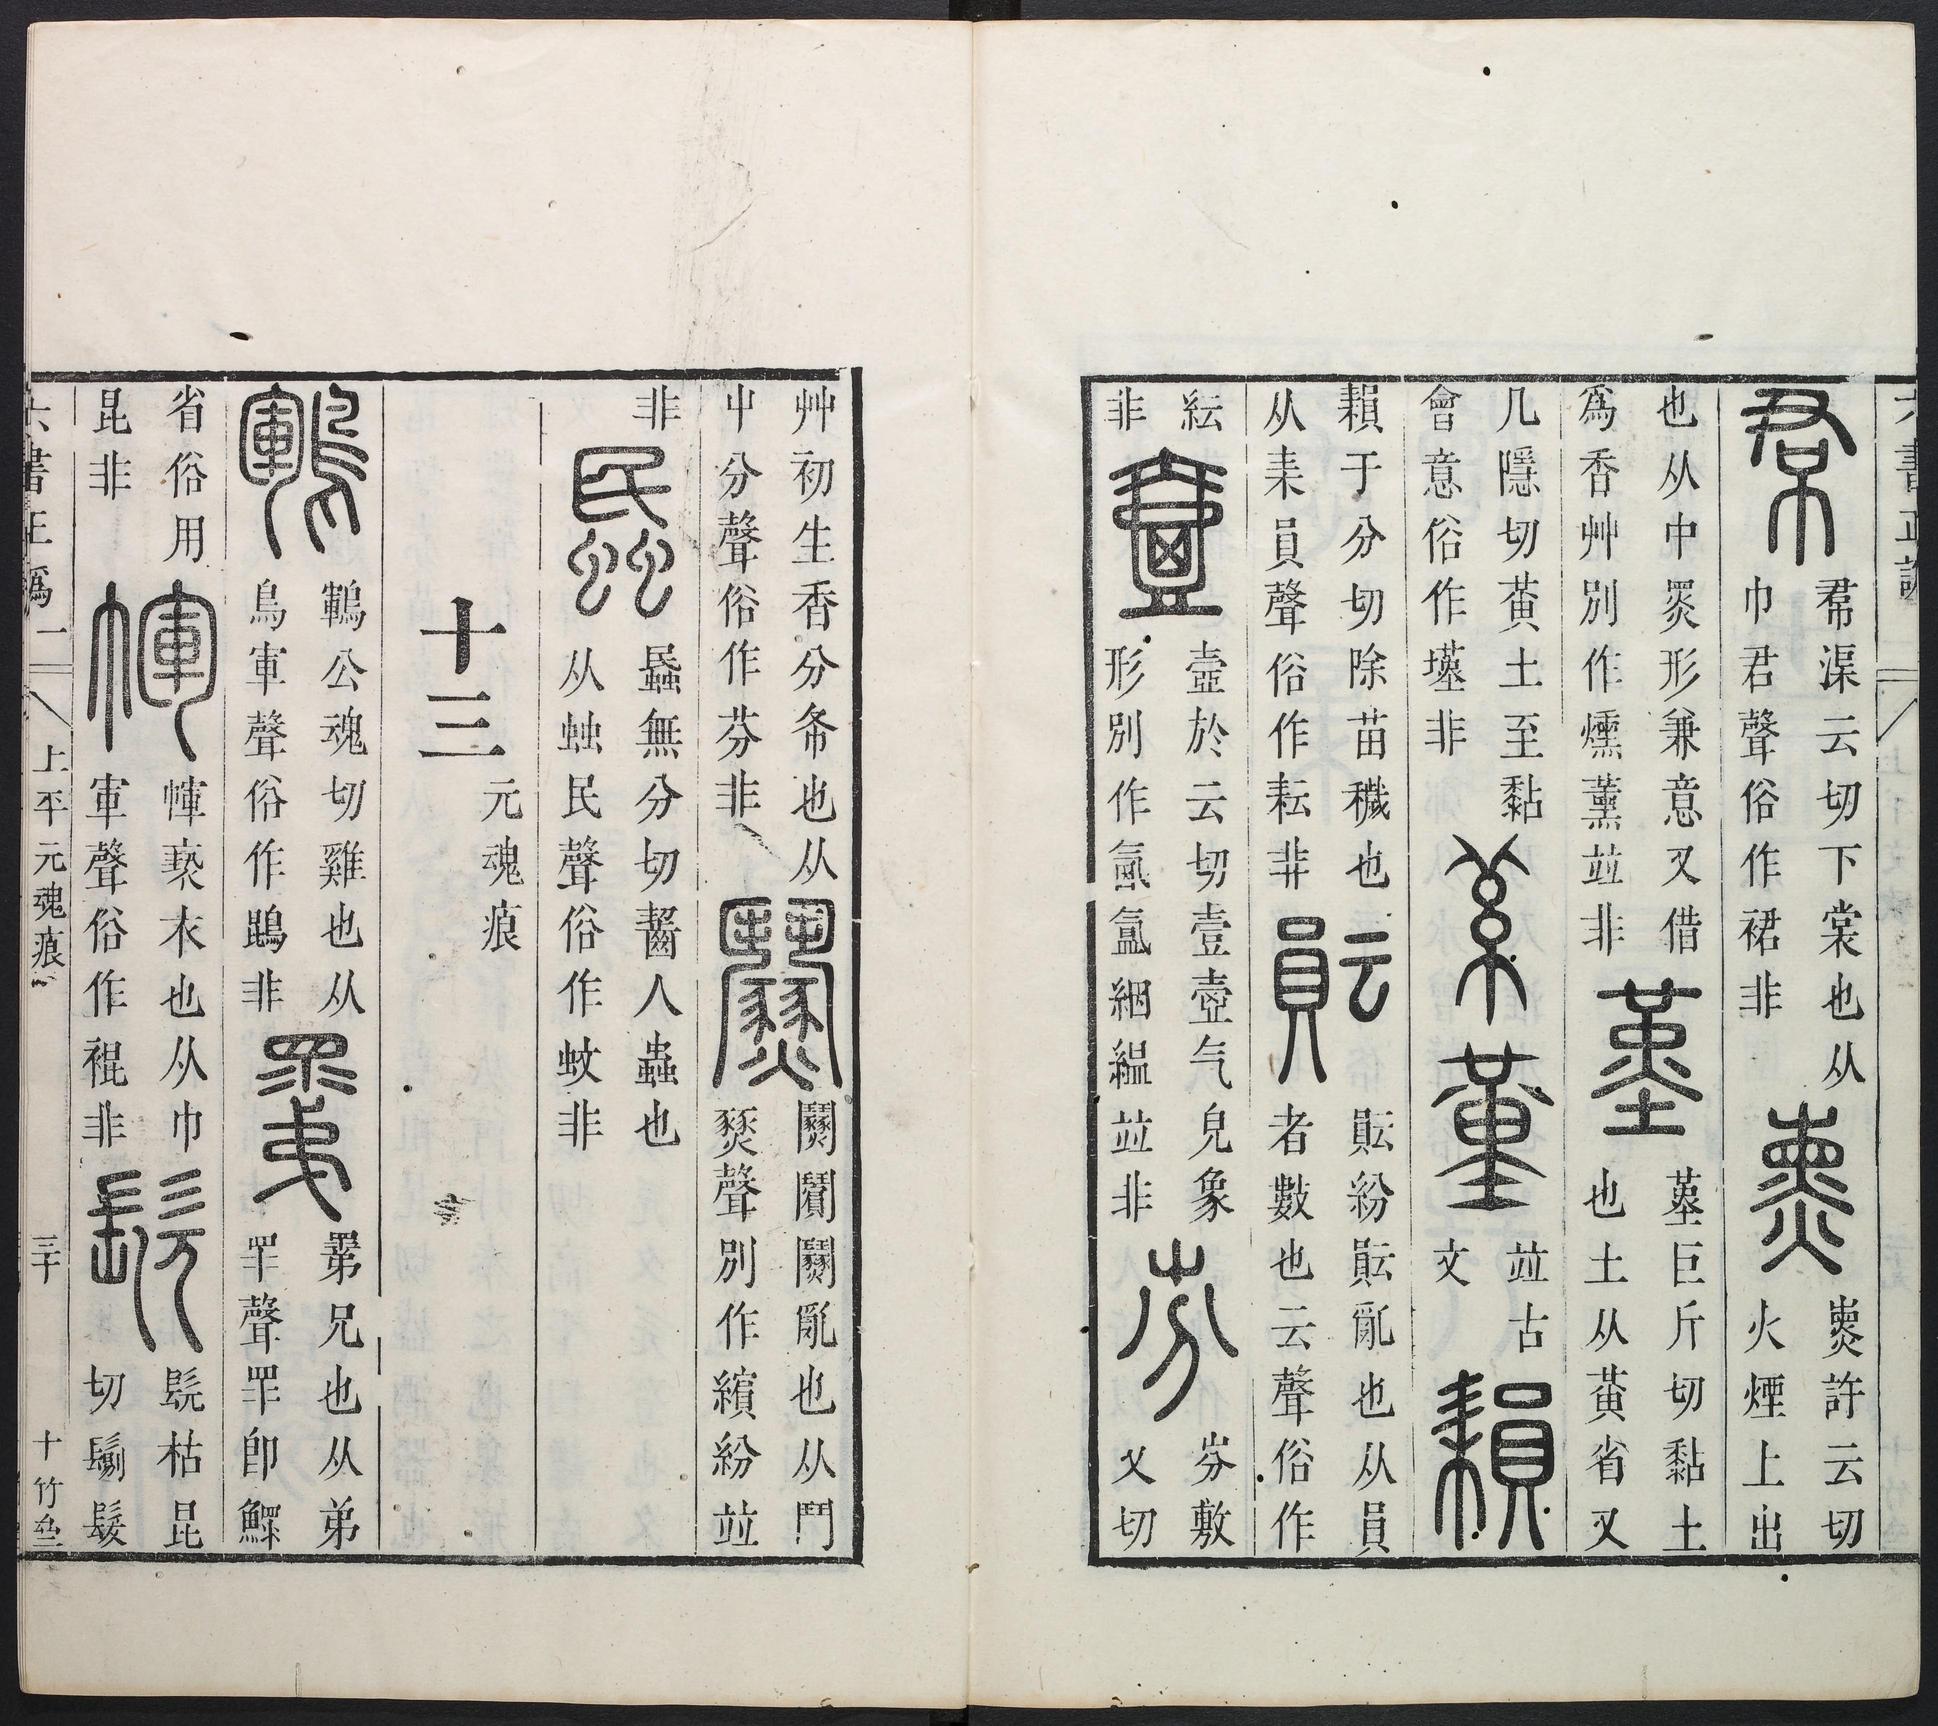 帬渠云切下棠也从
巾君聲俗作裙非
㷉許云切
火煙上出
也从中炗形兼意又借
為香艸別作燻薰竝非
墓巨斤切黏土
也土从黃省又
几隱切黃土至黏
會意俗作墐非
竝古
文
䢵于分切除苗穢也
从耒員聲俗作耘非
䫟紛䫟亂也从員
者數也云聲俗作
紜
非
壼於云切壹壼气皃象
形別作氤氳絪縕竝非
芬敷
文切
艸初生香分布也从
屮分聲俗作芬非
鬬鬩亂也从鬥
燹聲別作繽紛竝
非
蟁無分切齧人蟲也
从䖵民聲俗作蚊非
十三
元魂痕
鶤公魂切雞也从
鳥軍聲俗作鵾非
㒸兄也从弟
眔聲眔即鰥
省俗用
昆非
㡓褻衣也从巾
軍聲俗作裩非
髡枯昆
切鬀髮
六書正譌 一
上平 元魂痕
三十
十竹齋